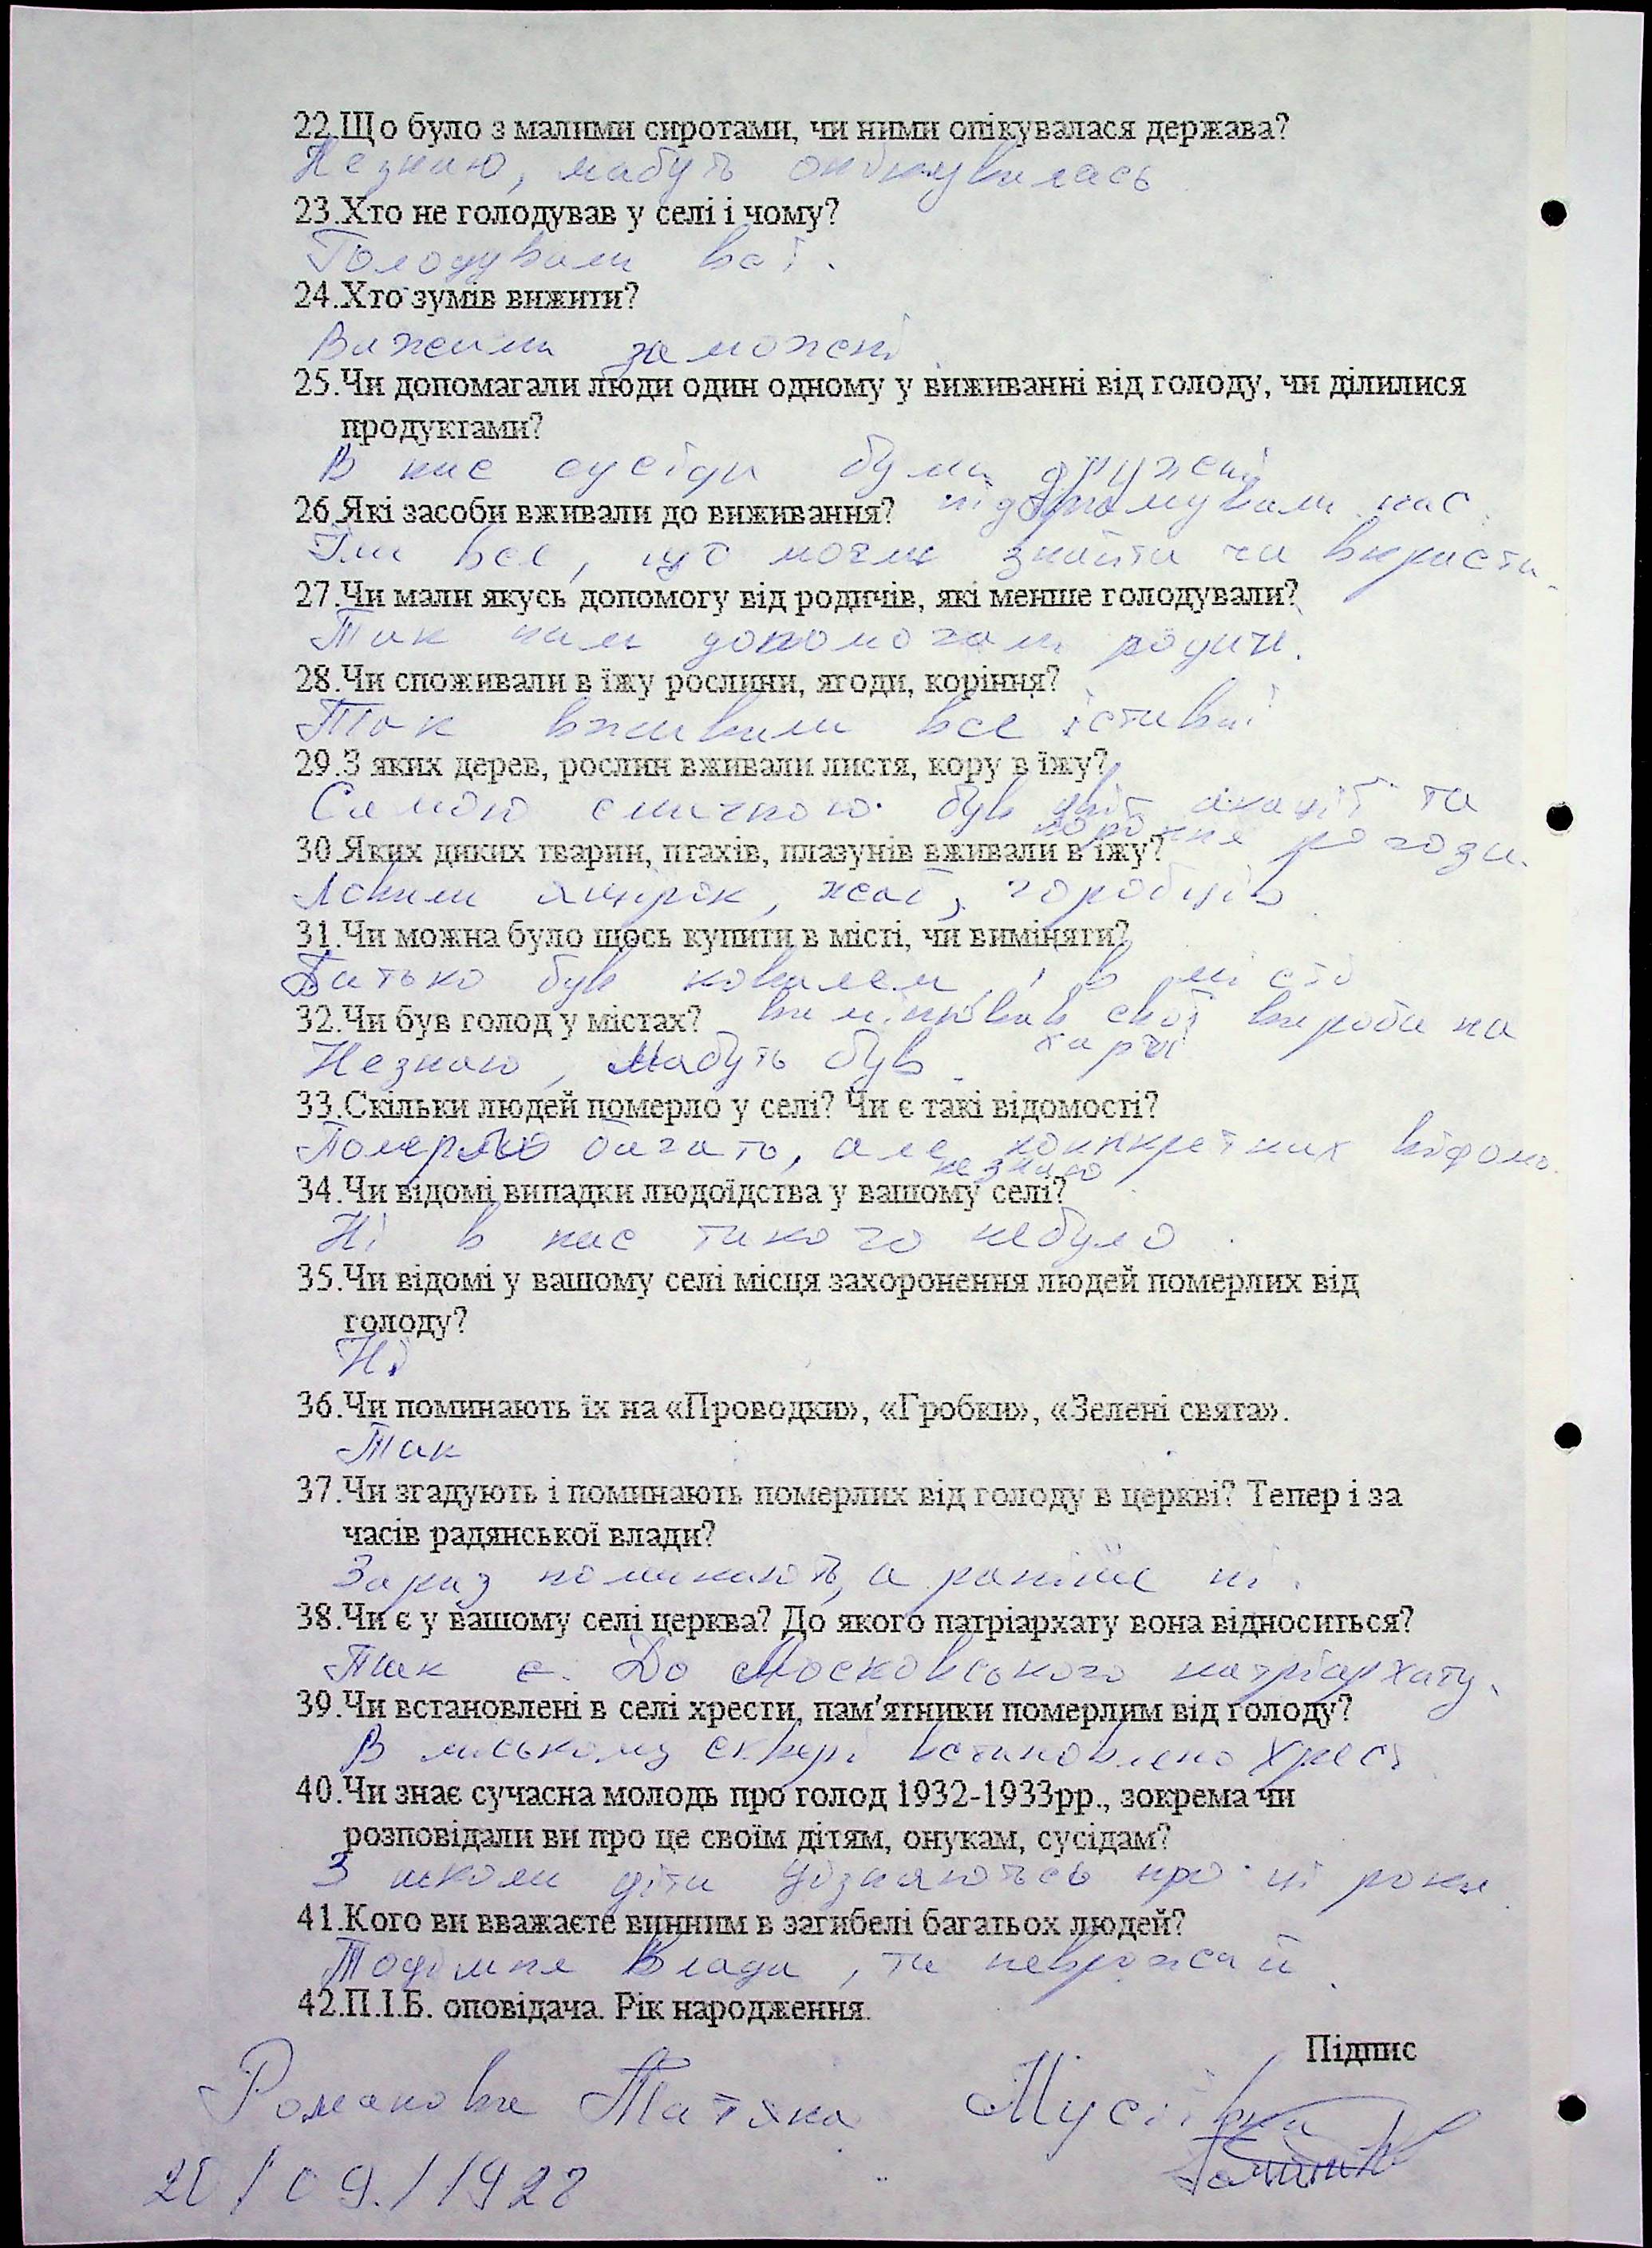 22.Що було з малими сиротами, чи ними опікувалася держава?
Незнаю, мабуть опікувалась
23.Хто не голодував у селі і чому?
Голодували всі.
24.Хто зумів вижити?
Вижили заможні
25.Чи допомагали люди один одному у виживанні від голоду, чи ділилися
продуктами?
В нас сусіди були дружені
підтримували нас.
26.Які засоби вживали до виживання?
Їли все, що могли знайти чи вкрасти.
27.Чи мали якусь допомогу від родичів, які менше голодували?
Так нам допомогали родичі.
28.Чи споживали в їжу рослини, ягоди, коріння?
Так вживали все їстивні
29.З яких дерев, рослин вживали листя, кору в їжу?
Самою смачною був цвіт акації та
коріння рогози.
30.Яких диких тварин, птахів, плазунів вживали в їжу?
Ловили ящірок, жаб, горобців
31.Чи можна було щось купити в місті, чи виміняти?
Батько був ковалем, і в місті
вимінював свої вироби на
харчі
32.Чи був голод у містах?
Незнаю, Мабуть був.
33.Скільки людей померло у селі? Чи є такі відомості?
Померло багато, але конкретних відомо.
незнаю
34.Чи відомі випадки людоїдства у вашому селі?
Ні в нас такого небуло.
35.Чи відомі у вашому селі місця захоронення людей померлих від
голоду?
Ні
36.Чи поминають їх на «Проводки», «Гробки», «Зелені свята».
Так
37.Чи згадують і поминають померлих від голоду в церкві? Тепер і за
часів радянської влади?
Зараз поминають, а раніше ні.
38.Чи є у вашому селі церква? До якого патріархату вона відноситься?
Так є. До Московського патріархату.
39.Чи встановлені в селі хрести, пам'ятники померлим від голоду?
В міському сквері встановлено Хрест
40.Чи знає сучасна молодь про голод 1932-1933рр., зокрема чи
розповідали ви про це своїм дітям, онукам, сусідам?
З школи діти дізнаються про ці роки
41.Кого ви вважаєте винним в загибелі багатьох людей?
Тодішня Влада, та неврожай.
42.П.І.Б. оповідача. Рік народження.
Підпис
Романова Татяна Мусіївна
/09./1928